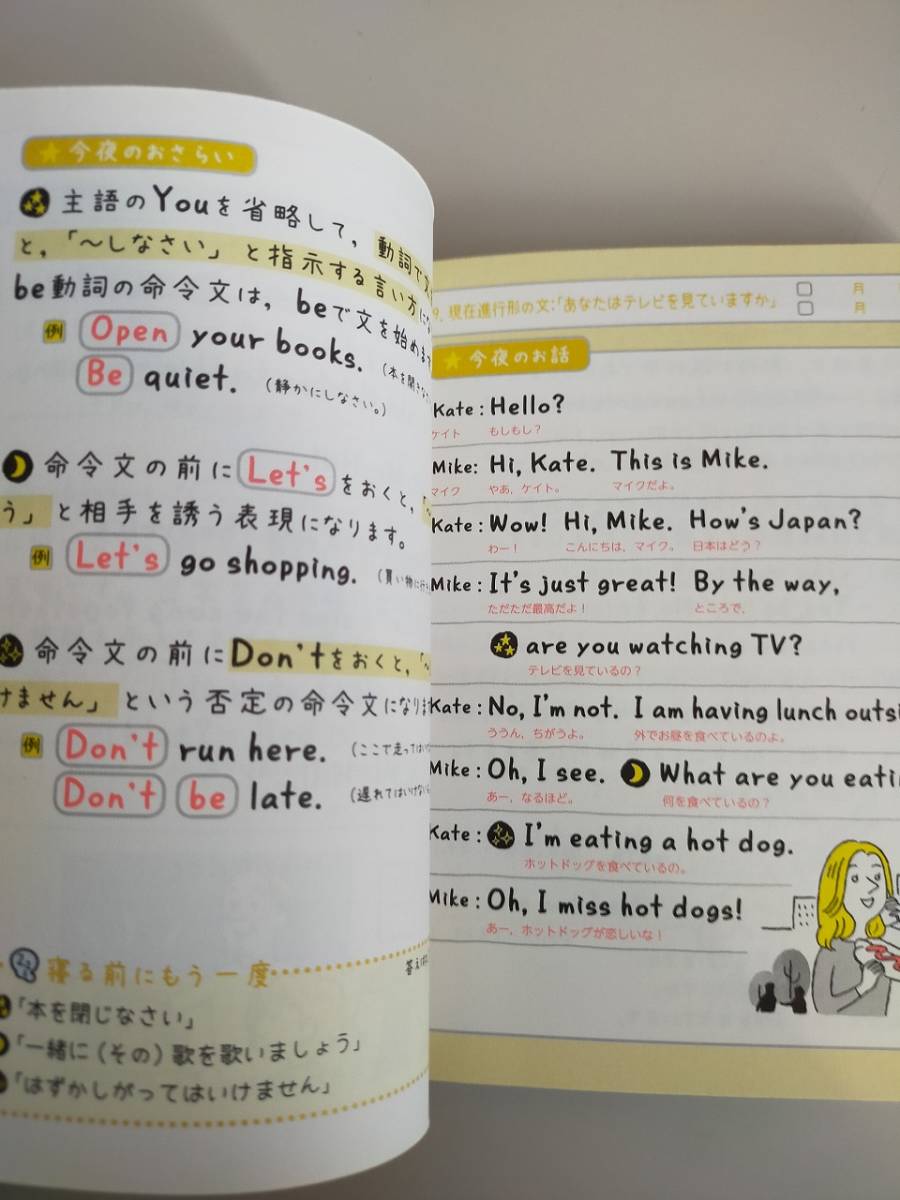 今夜のおさらい
主語のYouを省略して，動詞で文
と，「〜しなさい」と指示する言い方
be動詞の命令文は，beで文を始めま
例 Open your books.（本を開き
Be quiet.（静かにしなさい。）
命令文の前にLet'sをおくと，「
う」と相手を誘う表現になります。
例 Let's go shopping.（買い物に行
命令文の前にDon'tをおくと，「〜
けません」という否定の命令文になりま
例 Don't run here.（ここで走ってはい
Don't be late.（遅れてはいけない
寝る前にもう一度
答えは
「本を閉じなさい」
「一緒に（その）歌を歌いましょう」
「はずかしがってはいけません」
9. 現在進行形の文：「あなたはテレビを見ていますか」
月
月
今夜のお話
Kate : Hello?
ケイト もしもし？
Mike: Hi, Kate. This is Mike.
マイク やあ，ケイト。 マイクだよ。
Kate : Wow! Hi, Mike. How's Japan?
わー！ こんにちは，マイク。 日本はどう？
Mike: It's just great! By the way,
ただただ最高だよ！ ところで，
are you watching TV?
テレビを見ているの？
Kate : No, I'm not. I am having lunch
ううん，ちがうよ。 外でお昼を食べているのよ。
Mike: Oh, I see. What are you
あー，なるほど。 何を食べているの？
Kate : I'm eating a hot dog.
ホットドッグを食べているの。
Mike: Oh, I miss hot dogs!
あー，ホットドッグが恋しいな！